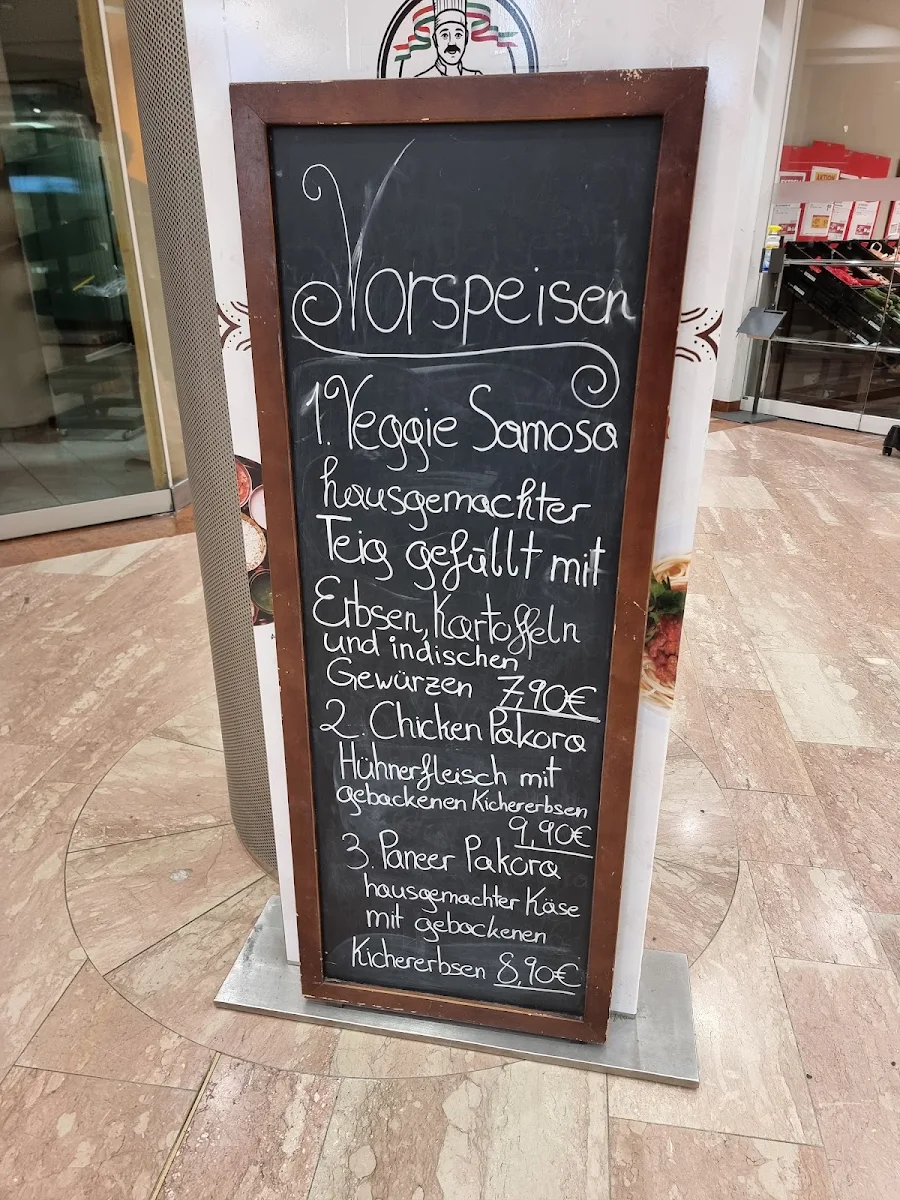 Vorspeisen
1. Veggie Samosa
hausgemachter
Teig gefüllt mit
Erbsen, Kartoffeln
und indischen
Gewürzen 7,90€
2. Chicken Pakora
Hühnerfleisch mit
gebackenen Kichererbsen
9,90€
3. Paneer Pakora
hausgemachter Käse
mit gebackenen
Kichererbsen 8,90€
AKTION